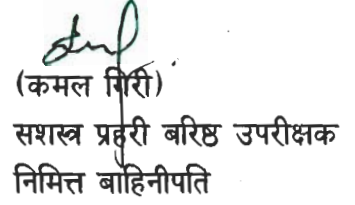 (कमल गिरी)
सशस्त्र प्रहरी बरिष्ठ उपरीक्षक
निमित्त बाहिनीपति